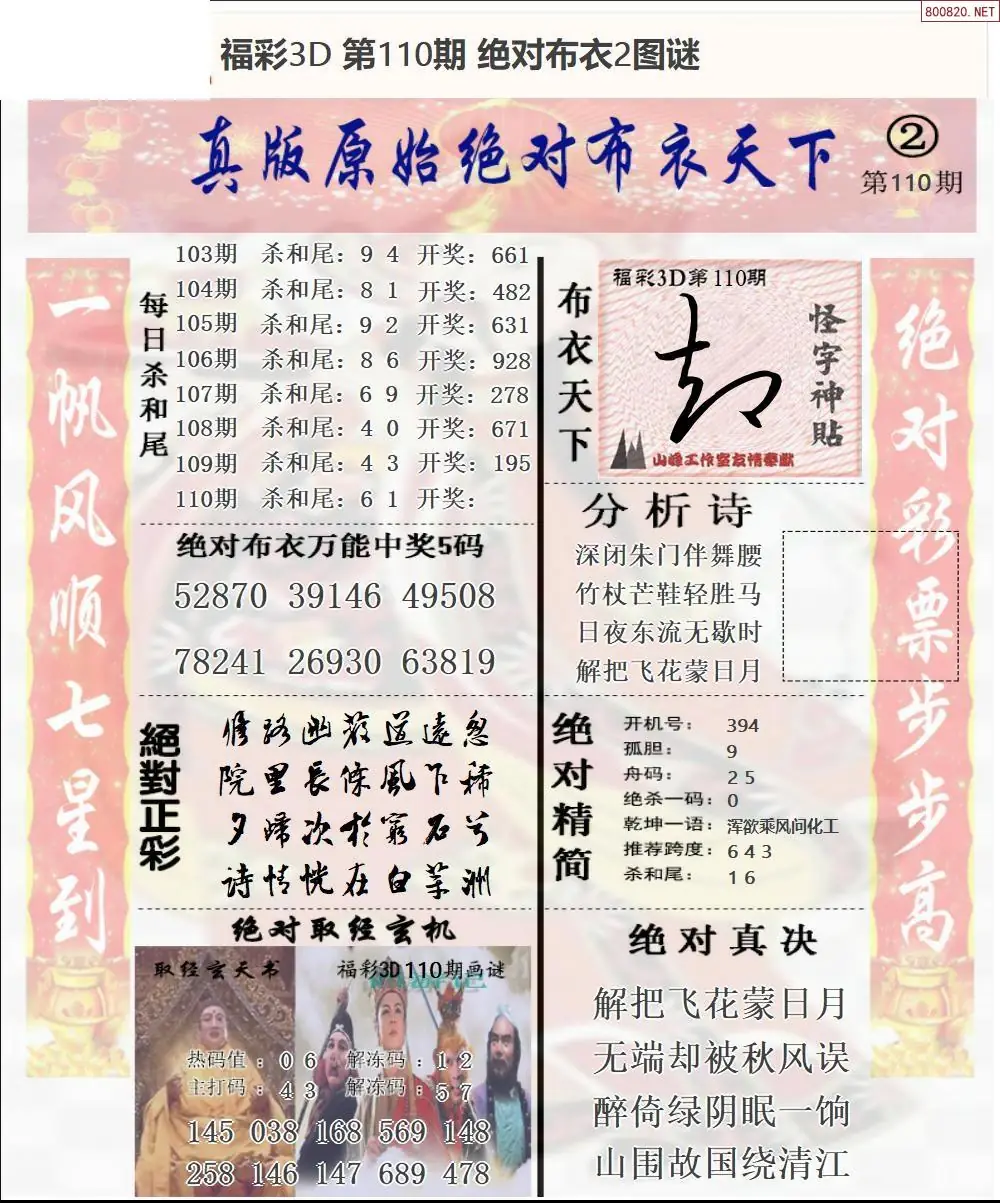 800820.NET
福彩3D 第110期 绝对布衣2图谜
真版原始绝对布衣天下
②
第110期
一帆风顺七星到
每日杀和尾
103期 杀和尾：9 4 开奖：661
104期 杀和尾：8 1 开奖：482
105期 杀和尾：9 2 开奖：631
106期 杀和尾：8 6 开奖：928
107期 杀和尾：6 9 开奖：278
108期 杀和尾：4 0 开奖：671
109期 杀和尾：4 3 开奖：195
110期 杀和尾：6 1 开奖：
绝对布衣万能中奖5码
52870 39146 49508
78241 26930 63819
絕對正彩
路幽 道遠忽
院里長 風下稀
夕 次於窮石
诗情恍在白 洲
绝对取经玄机
取经玄天书
福彩3D110期画谜
热码值：0 6 解冻码：1 2
主打码：4 3 解冻码：5 7
145 038 168 569 148
258 146 147 689 478
布衣天下
福彩3D第110期
怪字神貼
山峰工作室友情奉献
分析诗
深闭朱门伴舞腰
竹杖芒鞋轻胜马
日夜东流无歇时
解把飞花蒙日月
绝对精简
开机号： 394
孤胆： 9
舟码： 2 5
绝杀一码：0
乾坤一语：浑欲乘风问化工
推荐跨度：6 4 3
杀和尾： 1 6
绝对真决
解把飞花蒙日月
无端却被秋风误
醉倚绿阴眠一饷
山围故国绕清江
绝对彩票步步高